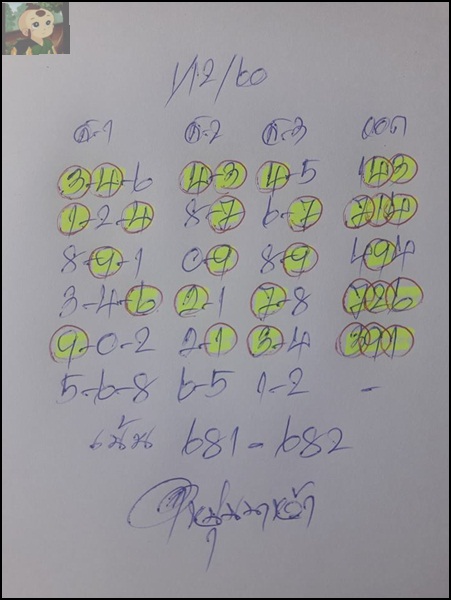 1/12/60
ต.1 ต.2 ต.3 ออก
3-4-6 4-3 4-5 143
1-2-4 8-7 6-7 714
8-9-1 0-9 8-9 494
3-4-6 2-1 7-8 726
9-0-2 2-1 3-4 391
5-6-8 6-5 1-2 -
เน้น 681 - 682